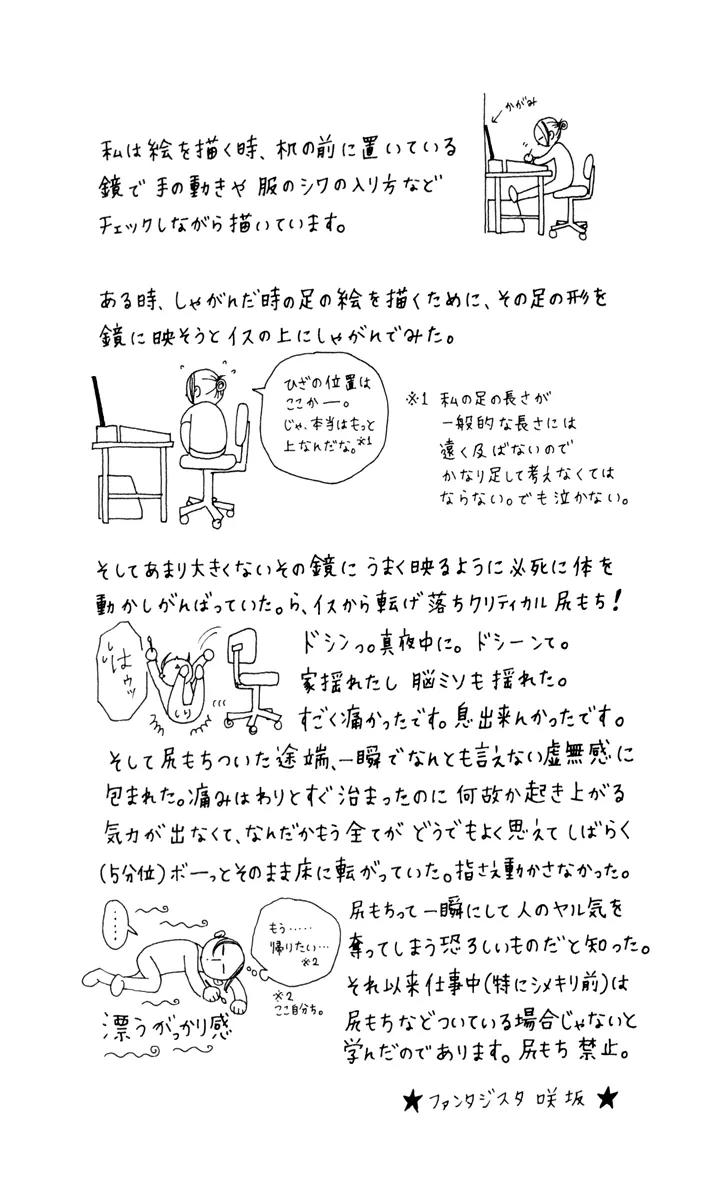 かがみ
私は絵を描く時、机の前に置いている
鏡で手の動きや服のシワの入り方など
チェックしながら描いています。
ある時、しゃがんだ時の足の絵を描くために、その足の形を
鏡に映そうとイスの上にしゃがんでみた。
ひざの位置は
ここかー。
じゃ、本当はもっと
上なんだな。※1
※1 私の足の長さが
一般的な長さには
遠く及ばないので
かなり足して考えなくては
ならない。でも泣かない。
そしてあまり大きくないその鏡にうまく映るように必死に体を
動かしがんばっていた。ら、イスから転げ落ちクリティカル尻もち!
はぅッ
しり
ドシンっ。真夜中に。ドシーンて。
家揺れたし脳ミソも揺れた。
すごく痛かったです。息出来んかったです。
そして尻もちついた途端、一瞬でなんとも言えない虚無感に
包まれた。痛みはわりとすぐ治まったのに何故か起き上がる
気力が出なくて、なんだかもう全てがどうでもよく思えてしばらく
(5分位)ボーっとそのまま床に転がっていた。指さえ動かさなかった。
・・・・
もう・・・・・
帰りたい…
※2
※2
ここ自分ち。
漂うがっかり感
尻もちって一瞬にして人のヤル気を
奪ってしまう恐ろしいものだと知った。
それ以来仕事中(特にシメキリ前)は
尻もちなどついている場合じゃないと
学んだのであります。尻もち禁止。
★ファンタジスタ咲坂★